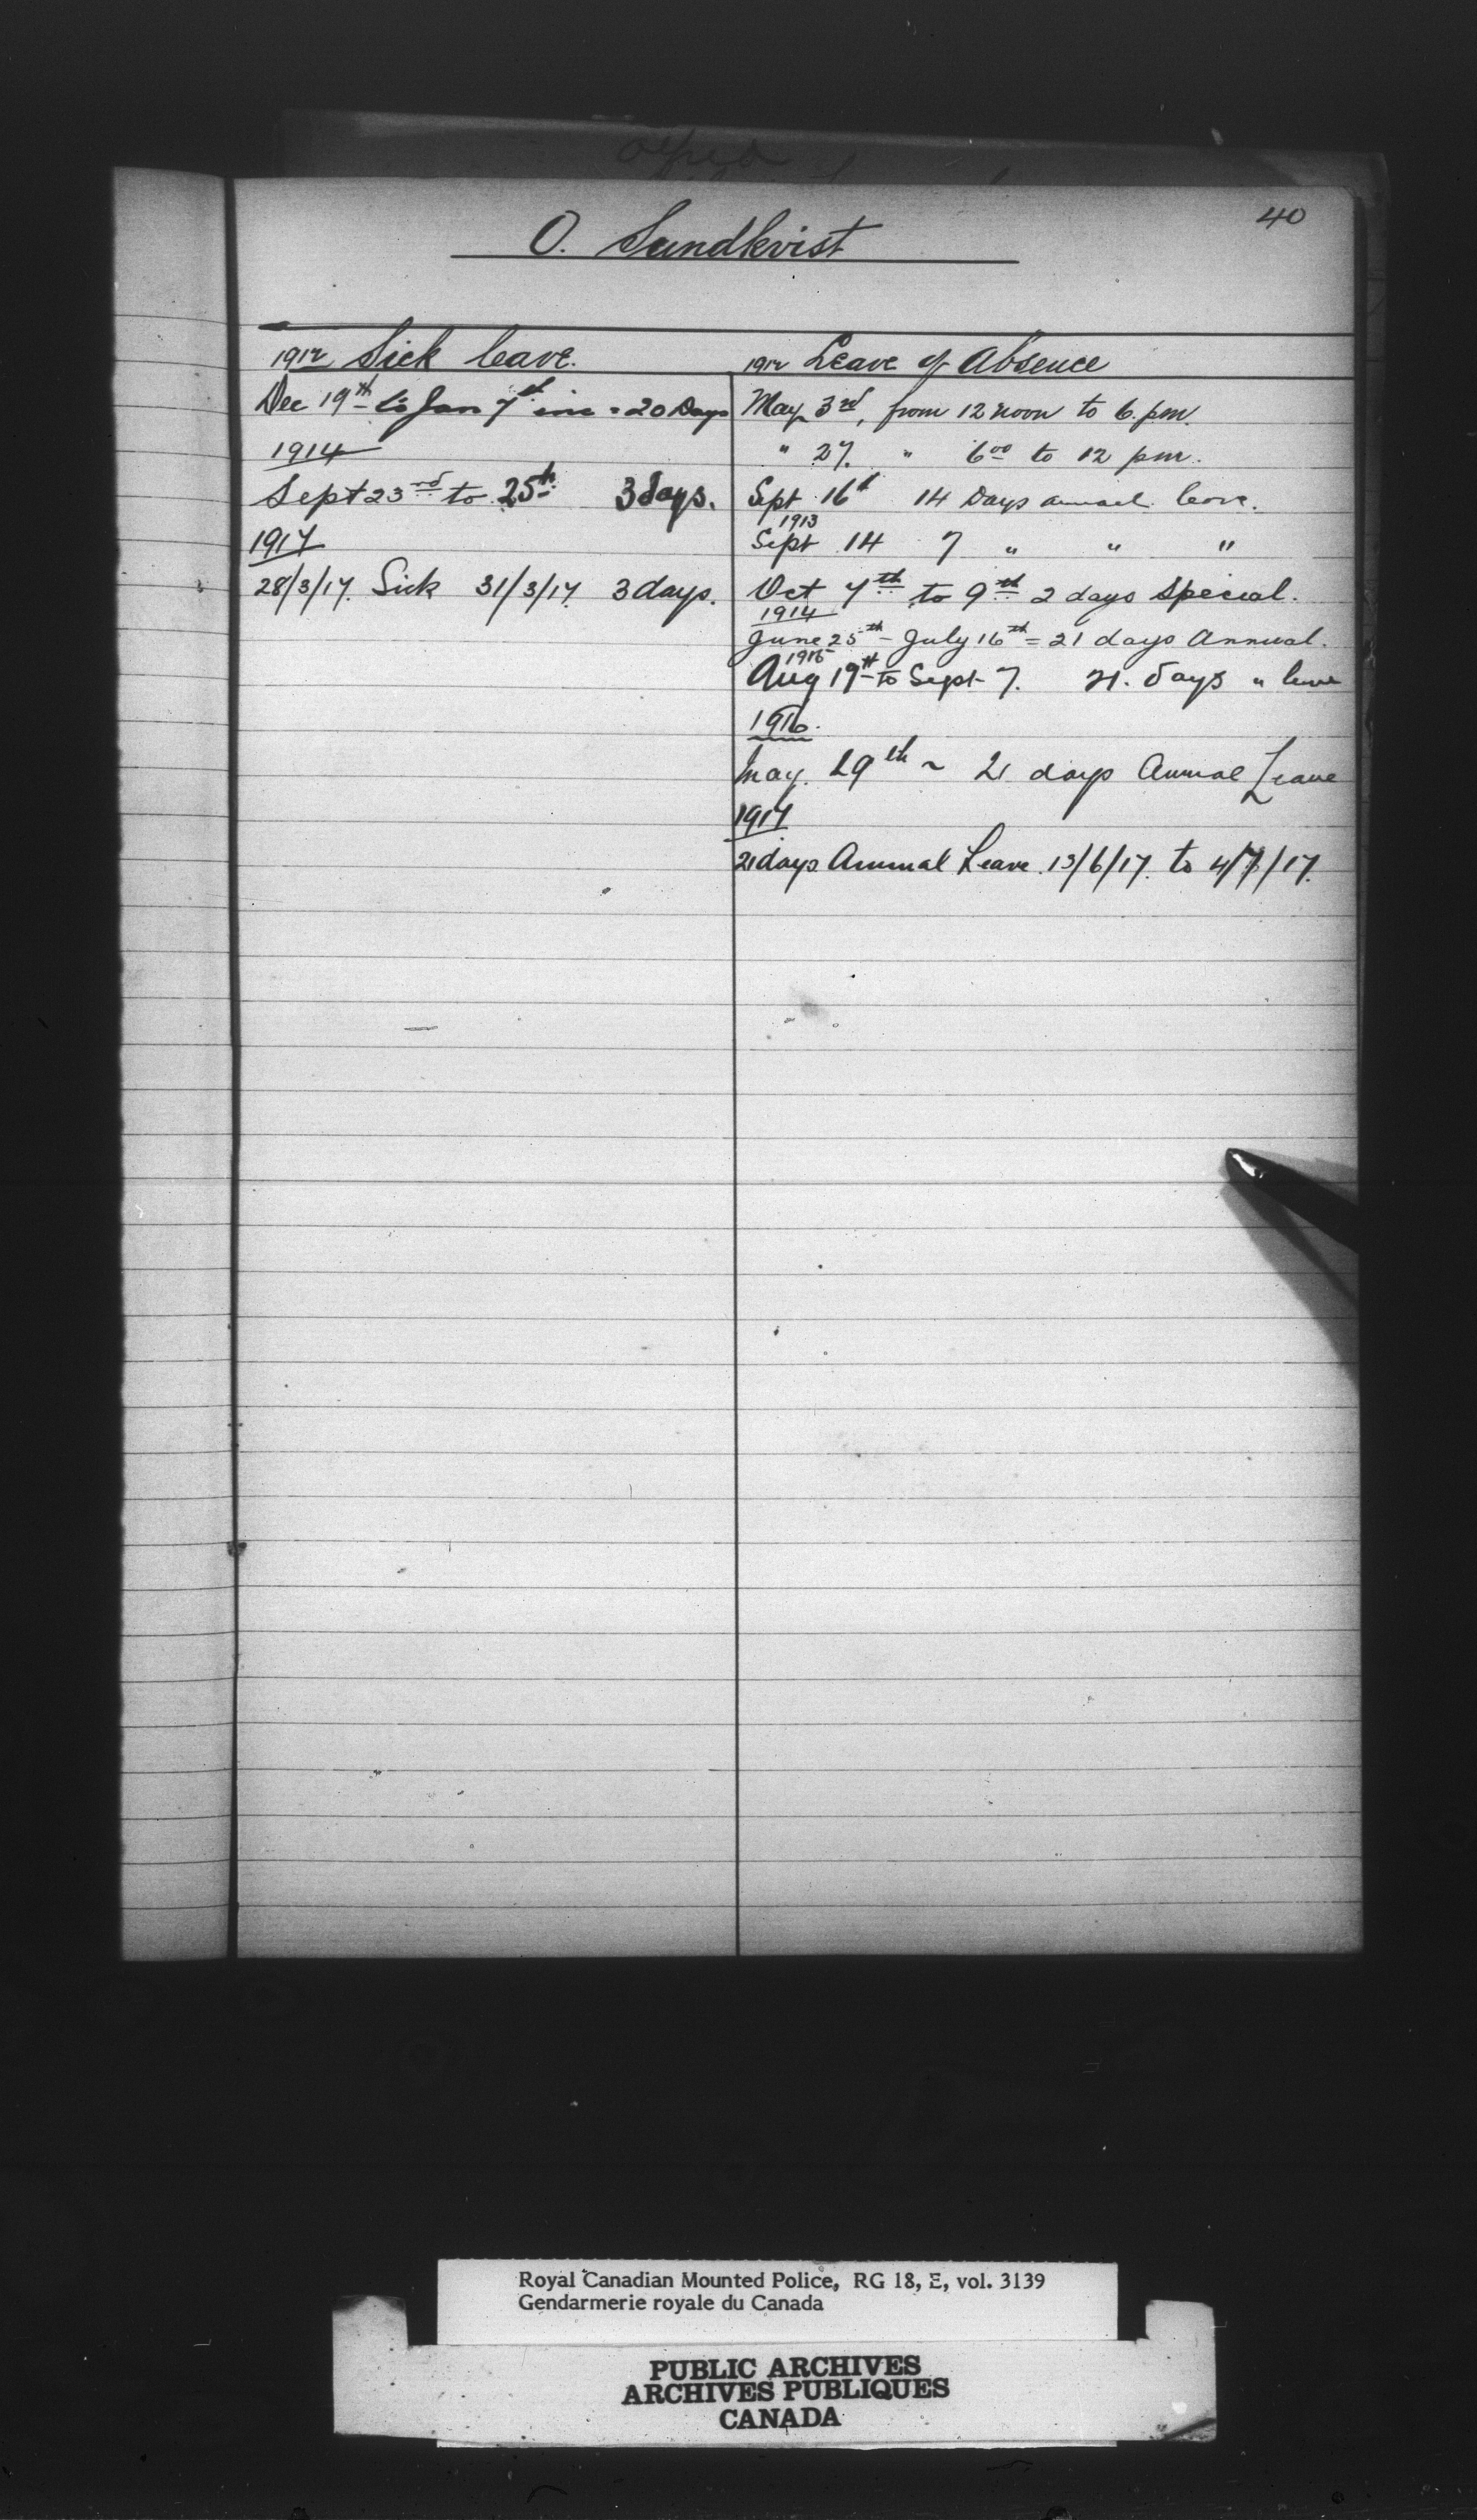 40
O. Sundkvist
1912 Sick leave.
Dec 19th to Jan 7th inc = 20 Days
1914
Sept 23rd to 25th 3 days.
1917
28/3/17. Sick 31/3/17. 3 days.
1912 Leave of Absence
May 3rd, from 12 noon to 6. pm.
" 27. " 6 00 to 12 pm.
Sept 16th 14 Days annual leave.
1913
Sept 14 7 " " "
Oct 7th to 9th 2 days Special.
1914
June 25th - July 16th = 21 days Annual.
1915
Aug 19th to Sept 7. 21. days " leave
1916.
May. 29th ~ 21 days Annual Leave
1917
21 days Annual Leave. 13/6/17. to 4/7/17.
Royal Canadian Mounted Police, RG 18, E, vol. 3139
Gendarmerie royale du Canada
PUBLIC ARCHIVES
ARCHIVES PUBLIQUES
CANADA